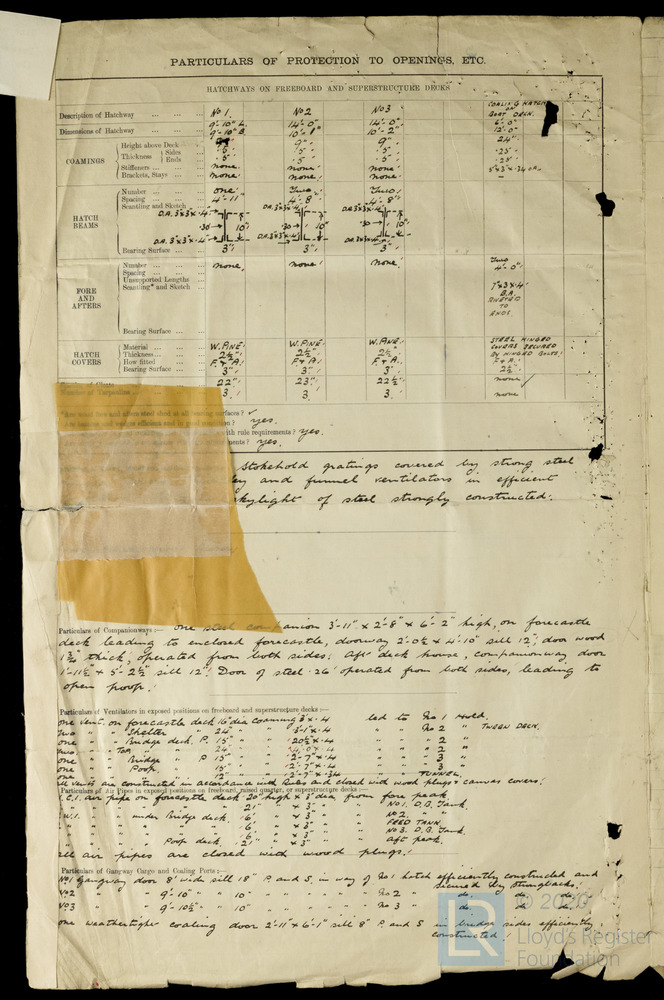 PARTICULARS OF PROTECTION TO OPENINGS, ETC.
HATCHWAYS ON FREEBOARD AND SUPERSTRUCTURE DECKS
Description of Hatchway ... No 1. No 2 No 3 COALING HATCH ON BOAT DECK.
Dimensions of Hatchway ... 9'-10" L. 9'-10" B. 14'-0" 10'-1" 14'-0" 10'-2" 6'-0" 12'-0"
COAMINGS
Height above Deck 9" 9" 24"
Thickness { Sides .5" .5" .5" .25"
{ Ends .5" .5" .5" .25"
Stiffeners ... none. none. none.
Brackets, Stays ... none. none. none. —
HATCH BEAMS
Number ... one Two Two
Spacing ... 4'-11" 4'-8" 4'-8"
Scantling and Sketch D.A. 3"x3"x.4" D.A. 3"x3"x.4" D.A. 3"x3"x.4"
.30 10" .30 10" .30 10"
D.A. 3"x3"x.4" D.A. 3"x3"x.4" D.A. 3"x3"x.4"
Bearing Surface ... 3" 3" 3"
FORE AND AFTERS
Number ... none. none. none. Two
Spacing ... 4'-0"
Unsupported Lengths ...
Scantling* and Sketch 7"x3"x.4" B.A. RIVETED TO ENDS
Bearing Surface ...
HATCH COVERS
Material ... W. PINE. W. PINE. W. PINE. STEEL HINGED COVERS SECURED BY HINGED BOLTS.
Thickness ... 2½" 2½" 2½"
How fitted ... F. & A. F. & A. F. & A. F. & A.
Bearing Surface ... 3" 3" 3" 2½"
22" 23" 22½" none
Number of Tarpaulins ... 3. 3. 3. none
faces? ✓
on? yes.
ith rule requirements? yes.
ments? yes.
Stokehold gratings covered by strong steel
and funnel ventilators in efficient
kylight of steel strongly constructed.
Particulars of Companionways :— One steel companion 3'-11" x 2'-8" x 6'-2" high, on forecastle
deck leading to enclosed forecastle, doorway 2'-0½ x 4'-10" sill 12", door wood
1¾" thick, operated from both sides. Aft deck house, companionway door
1'-11½" x 5'-2½ sill 12". Door of steel .26" operated from both sides, leading to
open poop.
Particulars of Ventilators in exposed positions on freeboard and superstructure decks :—
one vent. on forecastle deck 16" dia coaming 3' x .4 led to No 1 Hold.
Two " " Shelter " 24" " 3'-1" x .4 " " No 2 " TWEEN DECK.
one " " Bridge deck. P. 15" " " 2 "
Two " " Top " 24" " " 2 "
one " " Bridge " P 15" " 2'-7" x .4 " " 3 "
one " " Poop. " 15" " 2'-7" x .4 " " 3 "
one " " " 12" " 2'-7" x .34 " " TUNNEL.
All vents are constructed in accordance with Rules and closed with wood plugs & canvas covers.
Particulars of Air Pipes in exposed positions on freeboard, raised quarter, or superstructure decks :—
C.I. air pipe on forecastle deck 20" high x 3" dia. from fore peak.
" " " " " 21" " x 3" " " No 1. D.B. Tank.
W.I. " " under Bridge deck. 6" " x 3" " " No 2. "
" " " " " 6" " x 3" " " FEED TANK
" " " " " 6" " x 3" " " No 3. D.B. Tank.
" " " Poop deck. 21" " x 3" " " aft peak.
All air pipes are closed with wood plugs.
Particulars of Gangway Cargo and Coaling Ports :—
No 1 Gangway door 8' wide sill 18" P. and S. in way of No 1 hatch efficiently constructed and secured by strongbacks.
No 2 " " 9'-10" " " 10" " " " " No 2 " do. do. do.
No 3 " " 9'-10½" " " 10" " " " " No 3 " do. do. do.
one weathertight coaling door 2'-11" x 6'-1" sill 8" P. and S in bridge sides efficiently
constructed.
© 2020
LR
Lloyd's Register
Foundation